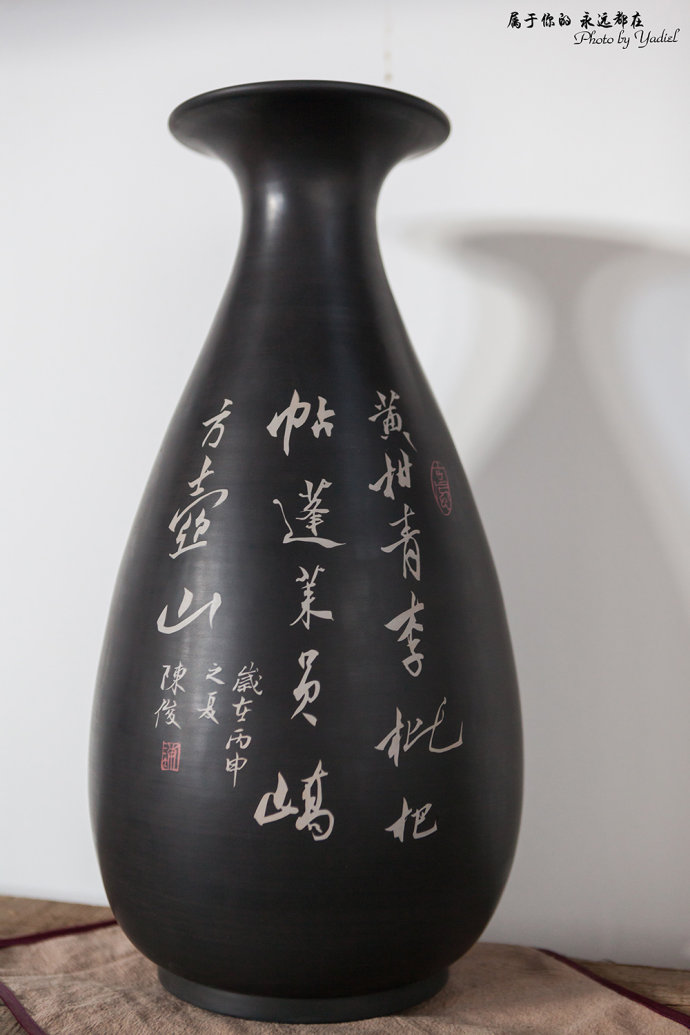 属于你的 永远都在
Photo by Yadiel
黄柑青李枇杷
帖蓬莱员峤
方壶山
歲在丙申
之夏
陳俊